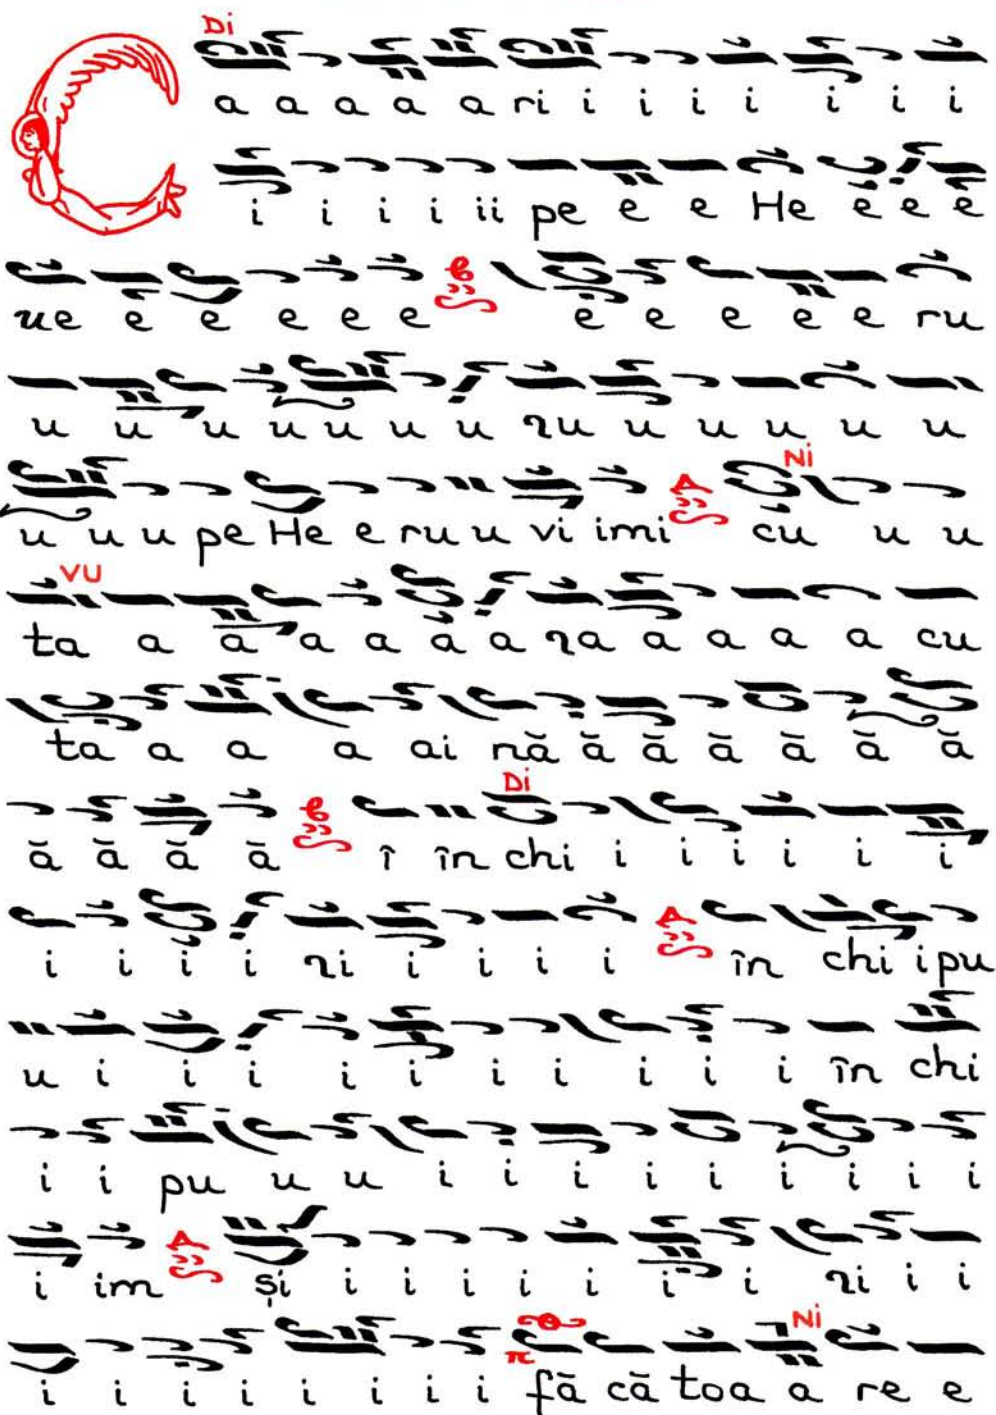 Di
C a a a a a ri i i i i i i i
i i i i ii pe e e He e e e
ne e e e e e e e e e e ru
u u u u u u u nu u u u u u
Ni
u u u pe He e ru u vi imi cu u u
VU
ta a a a a a a na a a a a cu
ta a a a ai nă ă ă ă ă ă ă
Di
ă ă ă ă î în chi i i i i i i
i i i i ni i i i i în chi i pu
u i i i i i i i i i i în chi
i i pu u u i i i i i i i i i
i im și i i i i i i i ni i i
Ni
i i i i i i i i fă că toa a re e